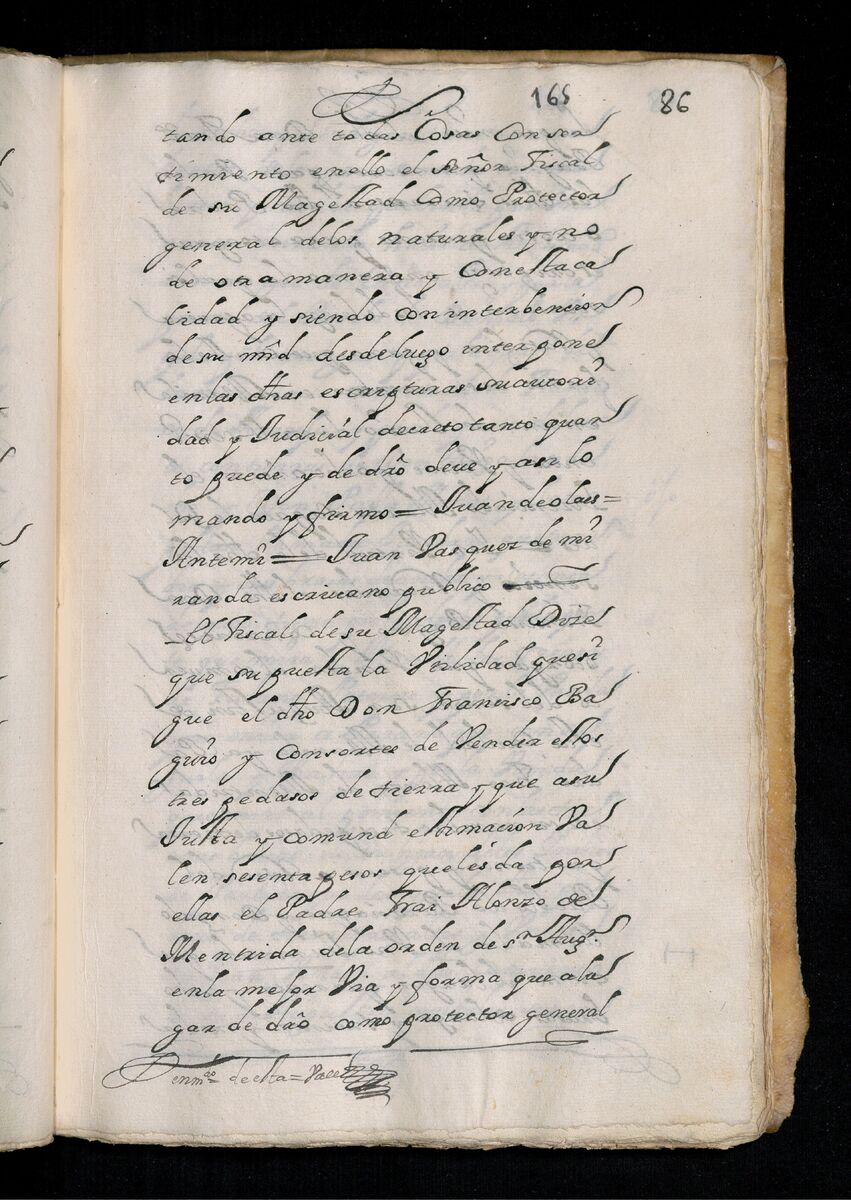 165 86
tando ante todas Cosas Consen
timiento enello el señor Fiscal
de su Magestad Como Protector
general delos naturales y no
de otra manera y Conesta ca
lidad y siendo con interbencion
de su mrd desde luego interpone
enlas dhas escripturas su autori
dad y Judicial decreto tanto quan
to puede y de dro deve y asi lo
mando y firmo = Juan de olaes =
Antemi = Juan Vasquez de mi
randa escriuano publico
El Fiscal de su Magestad Dize
que supuesta la Vtilidad quesi
gue el dho Don Francisco Ba
guio y Consortes de Vender estos
tres pedasos de tierra y que a su
Justa y comund estimación Va
len sesenta pesos que lés da por
ellas el Padre Frai Alonzo de
Mentrida dela orden de sn Augn.
enla mejor Via y forma que a lu
gar de dro como protector general
enmdo de esta = Vale